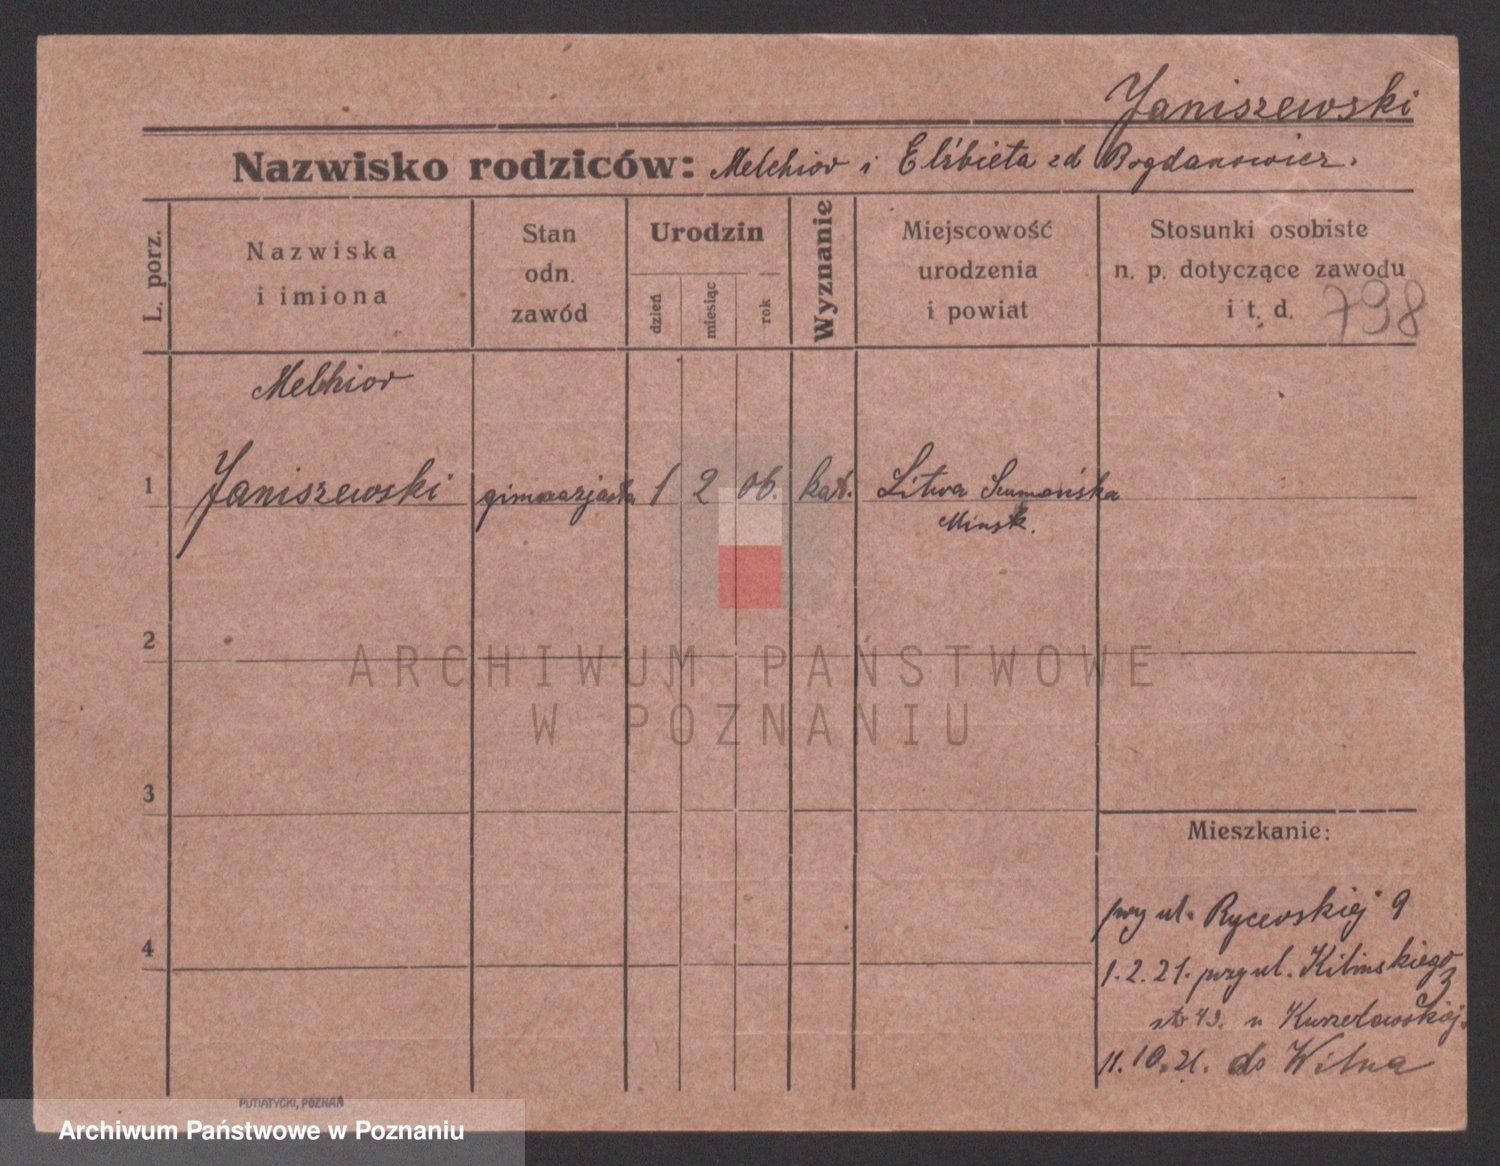 Janiszewski
Nazwisko rodziców: Melchior i Elżbieta zd Bogdanowicz.
L. porz.
Nazwiska
i imiona
Stan
odn.
zawód
Urodzin
dzień
miesiąc
rok
Wyznanie
Miejscowość
urodzenia
i powiat
Stosunki osobiste
n. p. dotyczące zawodu
i t. d.
798
Melhior
1 Janiszewski gimnazjasta 1 2 06. kat. Litwa
Minsk.
2
ARCHIWUM PAŃSTWOWE
W POZNANIU
3
Mieszkanie:
4
przy ul. Rycerskiej 9
1.2.21. przy ul. Kilinskiego
u
11.10.21. do Wilna
PUTIATYCKI, POZNAŃ
Archiwum Państwowe w Poznaniu